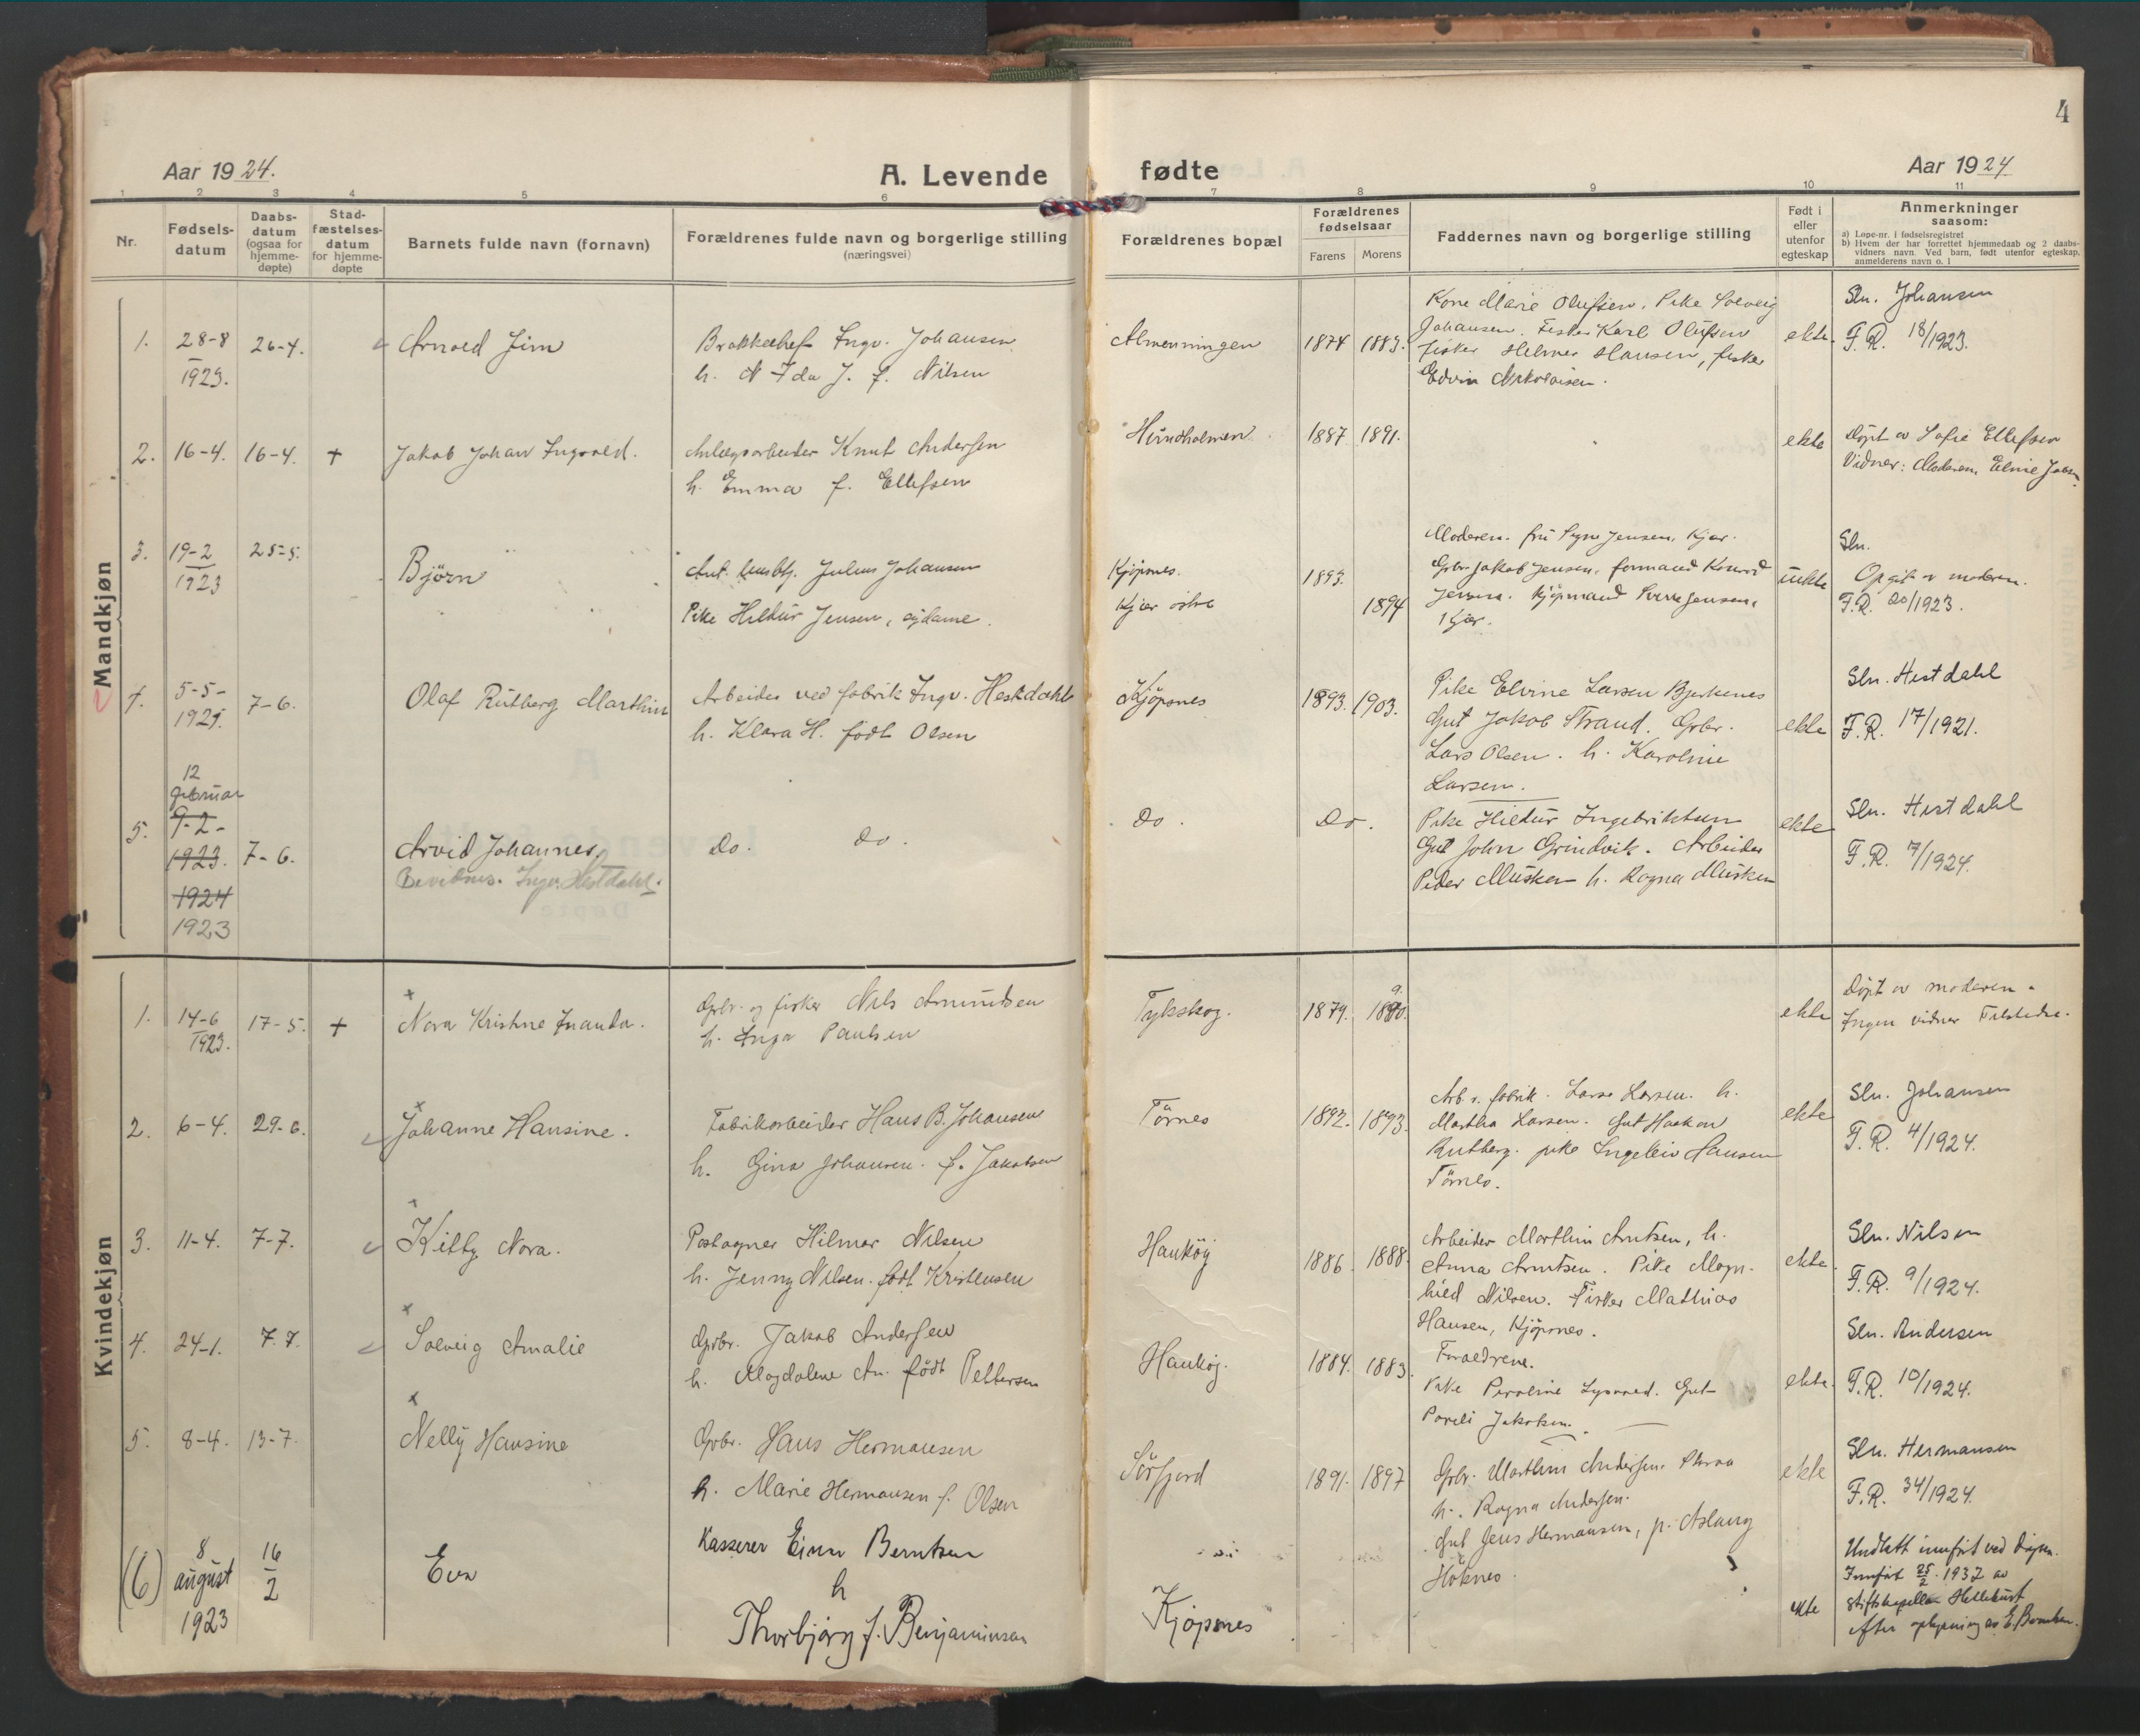 4
Aar 1924.
A. Levende fødte
Aar 1924
1 2 3 4 5 6 7 8 9 10 11
Nr.
Fødsels-
datum
Daabs-
datum
(ogsaa for
hjemme-
døpte)
Stad-
fæstelses-
datum
for hjemme-
døpte
Barnets fulde navn (fornavn)
Forældrenes fulde navn og borgerlige stilling
(næringsvei)
Forældrenes bopæl
Forældrenes
fødselsaar
Farens
Morens
Faddernes navn og borgerlige stilling
Født i
eller
utenfor
egteskap
Anmerkninger
saasom:
a) Løpe-nr. i fødselsregistret
b) Hvem der har forrettet hjemmedaab og 2 daabs-
vidners navn. Ved barn, født utenfor egteskap,
anmelderens navn o. l
Mandkjøn
1. 28-8
1923.
26-4.
Arnold Jim
Ingv. Johansen
h. Ida J. f. Nilsen
Almenningen
1874 1883.
Kone Marie Olufsen. Pike Solveig
Johansen. Fisker Karl Olufsen
fisker Helmer Hansen, fisker
Edvin Nikolaisen.
ekte.
Sln. Johansen
F.R. 18/1923.
2. 16-4. 16-4. +
Jakob Johan Ingvald.
Anlægsarbeider Knut Andersen
h. Emma f. Ellefsen
1887 1891.
ekte
Döpt av Sofie Ellefsen
Vidner: Moderen,
3. 19-2
1923
25-5.
Björn
Julius Johansen
Pike Hildur Jensen,
Kjöpsnes.
Kjær
1893.
1894
Moderen. fru Signe Jensen, Kjær.
Gbr. Jakob Jensen, formand Konrad
Jensen. Kjöpmand Sverre Jensen,
Kjær.
uekte
Sln.
Opgit av moderen.
F.R. 20/1923.
4. 5-5-
1921.
7-6.
Olaf Rutberg Marthin
Arbeider ved fabrik Ingv. Hestdahl
h. Klara H. födt Olsen
Kjöpsnes
1893. 1903.
Pike Elvine Larsen Bjerkenes
Gut Jakob Strand. Gbr.
Lars Olsen. h. Karoline
Larsen.
ekte
Sln. Hestdahl
F.R. 17/1921.
12
februar
5. 9-2-
1923.
1924
1923
7-6.
Arvid Johannes.
Bevidnes. Ingv. Hestdahl.
Do. do.
Do.
Do.
Pike Hildur Ingebriktsen
Gut John Grindvik. Arbeider
Peder Musken h. Ragna Musken
ekte
Sln. Hestdahl
F.R. 7/1924.
Kvindekjøn
1. 14-6
1923.
17-5. +
Nora Kristine Juanda.
Gbr. og fisker Nils Amundsen
h. Inga Paulsen
Tykskog.
1879.
ekte
Döpt av moderen.
Ingen vidner Tilstede.
2. 6-4. 29-6.
Johanne Hansine.
Fabrikarbeider Hans B. Johansen
h. Gina Johansen. f. Jakobsen
Törnes
1892. 1893.
Arb. v. fabrik. Lars Larsen. h.
Martha Larsen. Gut Haakon
Rutberg. pike Hansen
Törnes.
ekte
Sln. Johansen
F.R. 4/1924.
3. 11-4. 7-7.
Kitty Nora.
Postopner Hilmar Nilsen
h. Jenny Nilsen. födt Kristensen
Hauköy
1886. 1888.
Arbeider Marthin Arntsen, h.
Anna Arntsen. Pike Magn-
hild Nilsen. Fisker Mathias
Hansen, Kjöpsnes.
ekte.
Sln. Nilsen
F.R. 9/1924.
4. 24-1. 7-7.
Solveig Amalie
Gbr. Jakob Andersen
h. Magdalene An. födt Pettersen
Hauköy.
1884. 1883.
Foraeldrene.
Pike Gut
Jakobsen.
ekte.
Sln. Andersen
F.R. 10/1924.
5. 8-4. 13-7.
Nelly Hansine
Gbr. Hans Hermansen
h. Marie Hermansen f. Olsen
Sörfjord
1891. 1897
Gbr. Marthin Andersen.
h. Ragna Andersen.
Gut Jens Hermansen, p. Aslaug
ekte
Sln. Hermansen
F.R. 34/1924.
(6) 8
august
1923
16
2
Eva
Kasserer Einar Berntsen
h
Thorbjörg f. Benjaminsen
Kjöpsnes
ekte
Undlatt innfört ved dåpen.
Innfört 25/2 1937 av
stiftskapellan Hellekust
efter oplysning av E. Berntsen.